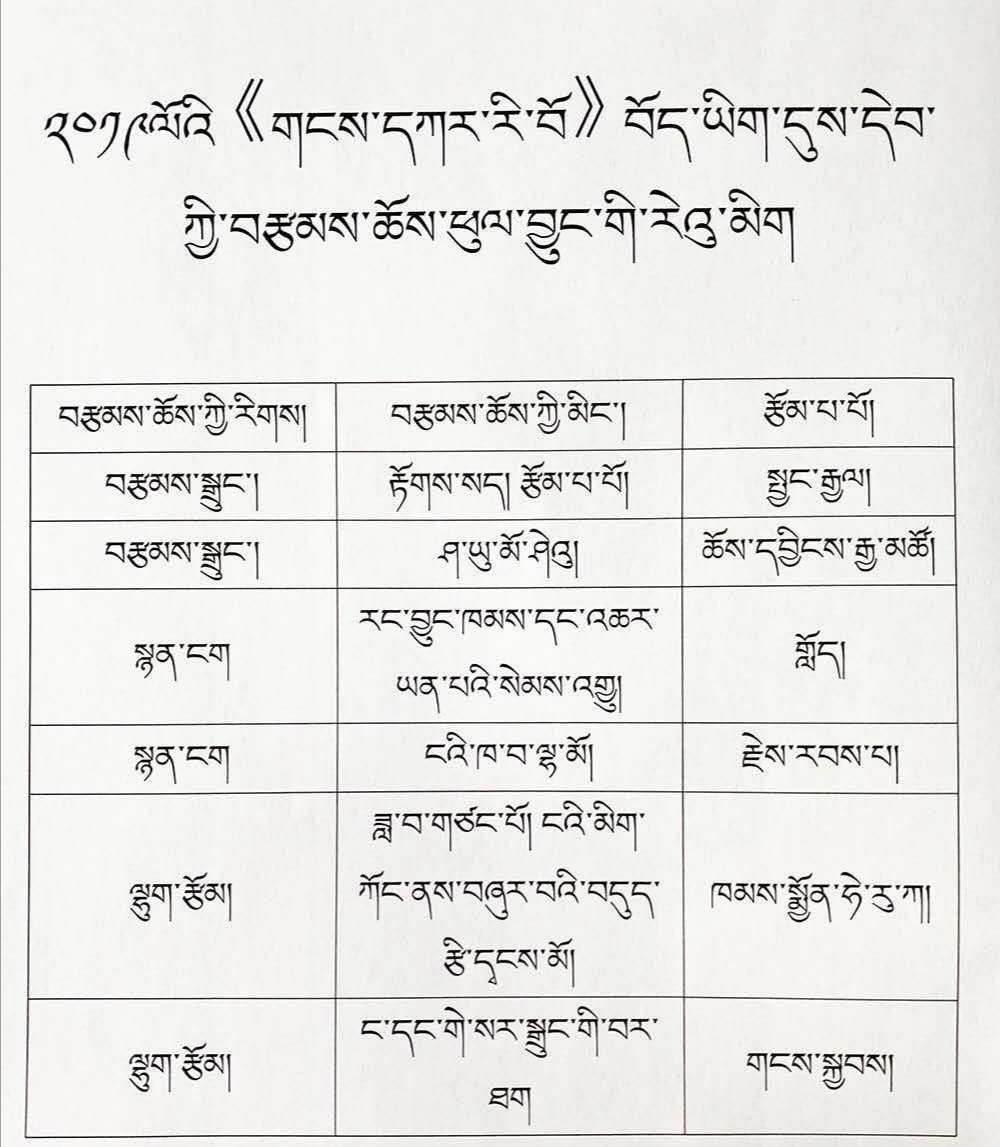 ༢༠༡༩ལོའི《གངས་དཀར་རི་བོ》བོད་ཡིག་དུས་དེབ་
ཀྱི་བརྩམས་ཆོས་ཕུལ་བྱུང་གི་རེའུ་མིག
བརྩམས་ཆོས་ཀྱི་རིགས། བརྩམས་ཆོས་ཀྱི་མིང་། རྩོམ་པ་པོ།
བརྩམས་སྒྲུང་། རྟོགས་སད། རྩོམ་པ་པོ། སྤྱང་རྒྱལ།
བརྩམས་སྒྲུང་། ཤ་ཡུ་མོ་ཤེའུ། ཆོས་དབྱིངས་རྒྱ་མཚོ།
སྙན་ངག རང་བྱུང་ཁམས་དང་འཆར་
ཡན་པའི་སེམས་འགྱུ། གློད།
སྙན་ངག ངའི་ཁ་བ་ལྷ་མོ། རྗེས་རབས་པ།
ལྷུག་རྩོམ། ཟླ་བ་གཙང་པོ། ངའི་མིག་
ཀོང་ནས་བཞུར་བའི་བདུད་
རྩི་དྭངས་མོ། ཁམས་སྨྱོན་ཧེ་རུ་ཀ།
ལྷུག་རྩོམ། ང་དང་གེ་སར་སྒྲུང་གི་བར་
ཐག གངས་སྐྱབས།